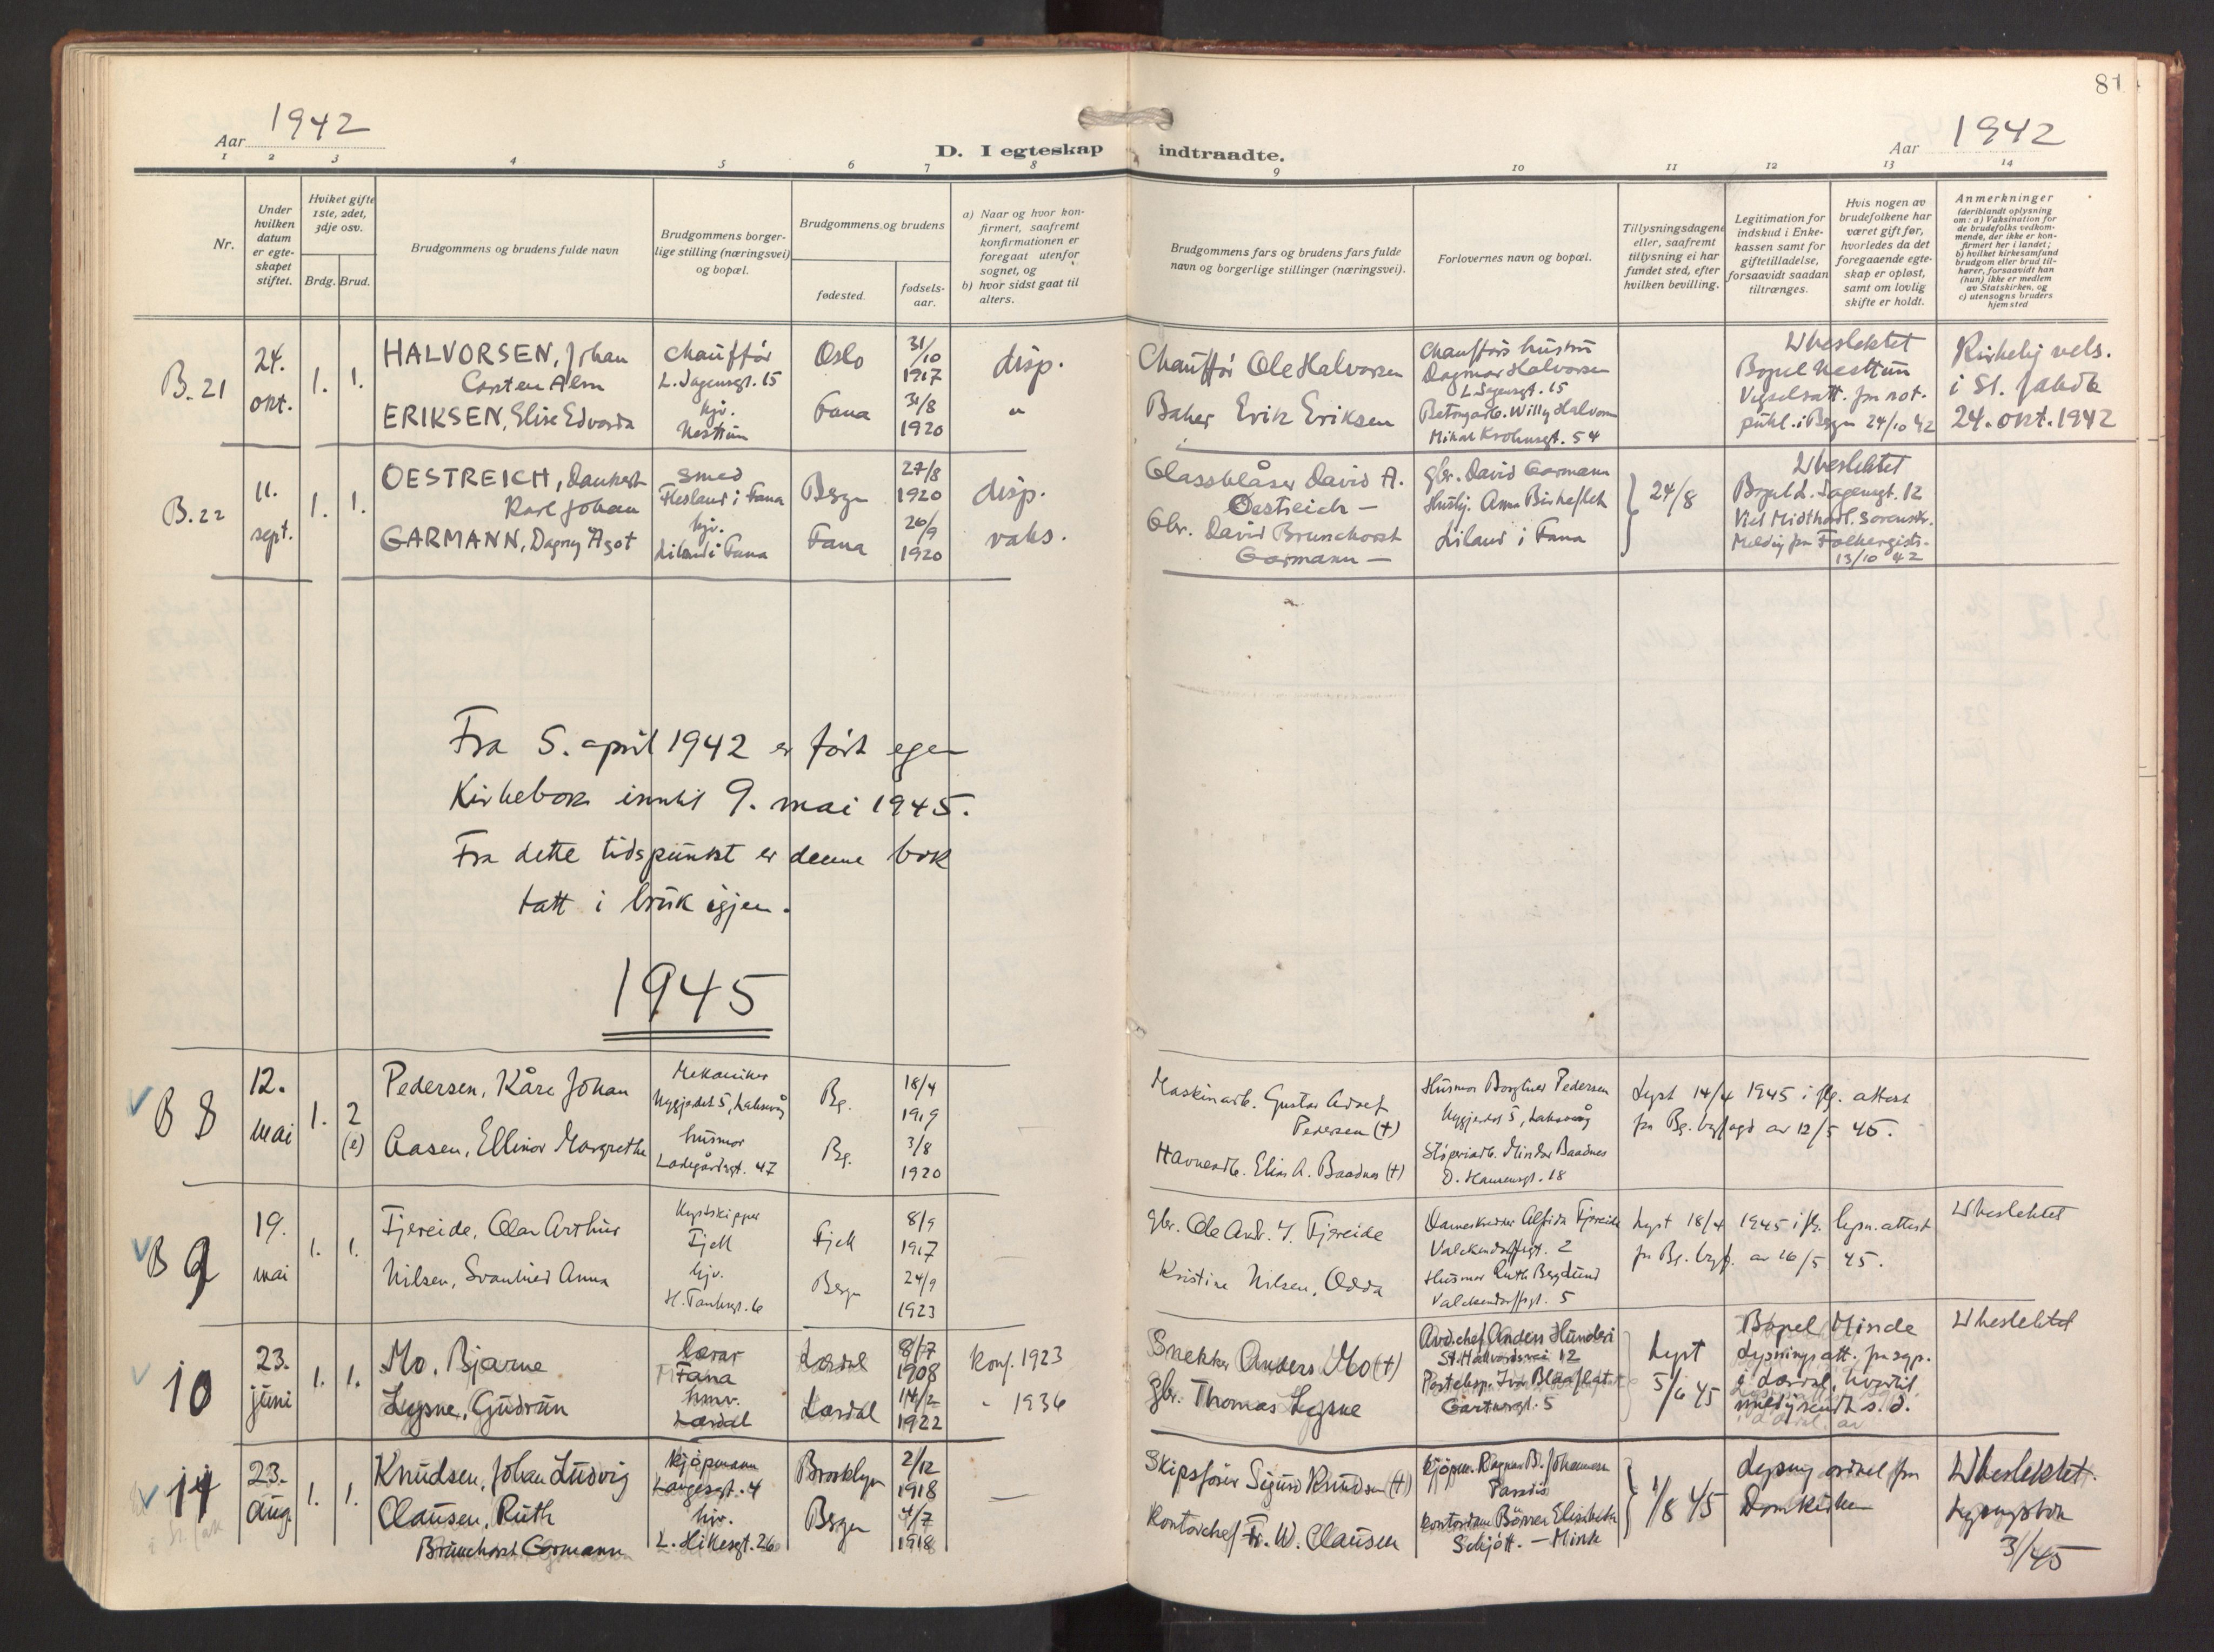 81
Aar 1942
D. I egteskap indtraadte.
Aar 1942
1 2 3 4 5 6 7 8 9 10 11 12 13 14
Nr.
Under hvilken datum er egte-skapet stiftet.
Hvilket gifte 1ste, 2det, 3dje osv.
Brdg. Brud.
Brudgommens og brudens fulde navn
Brudgommens borger-lige stilling (næringsvei) og bopæl.
Brudgommens og brudens
fødested.
fødsels-aar.
a) Naar og hvor kon-firmert, saafremt konfirmationen er foregaat utenfor sognet, og
b) hvor sidst gaat til alters.
Brudgommens fars og brudens fars fulde navn og borgerlige stillinger (næringsvei).
Forlovernes navn og bopæl.
Tillysningsdagene eller, saafremt tillysning ei har fundet sted, efter hvilken bevilling.
Legitimation for indskud i Enke-kassen samt for giftetilladelse, forsaavidt saadan tiltrænges.
Hvis nogen av brudefolkene har været gift før, hvorledes da det foregaaende egte-skap er opløst, samt om lovlig skifte er holdt.
Anmerkninger
(deriblandt oplysning om: a) Vaksination for de brudefolks vedkom-mende, der ikke er kon-firmert her i landet; b) hvilket kirkesamfund brudgom eller brud til-hører, forsaavidt han (hun) ikke er medlem av Statskirken, og c) utensogns bruders hjemsted
B. 21
24. okt.
1. 1.
HALVORSEN, Johan
Carsten Alm
ERIKSEN, Elise Edvarda
Chauffør
L. Sagensgt. 15
hjv.
Nesttun
Oslo
Fana
31/10 1917
31/8 1920
disp.
"
Chauffør Ole Halvorsen
Baker Erik Eriksen
Chaufførs hustru
Dagmar Halvorsen
L. Sagensgt. 15
Betongarb. Willy Halvorsen
Michal Krohnsgt. 54
Ubeslektet
Bopel Nesttun
Vigselsatt. fra not.
publ. i Bergen 24/10 42
Kirkelig vels.
i St. Jakob
24. okt. 1942
B. 22
11. sept.
1. 1.
OESTREICH, Dankert
Karl Johan
GARMANN, Dagny Ågot
Smed
Flesland i Fana
hjv.
Liland i Fana
Bergen
Fana
27/8 1920
26/9 1920
disp.
vaks.
Glassblåser David A.
Oestreich —
Gbr. David Brunchorst
Garmann —
gbr. David Garmann
Husbj. Anna Birkeflet
Liland i Fana
24/8
Ubeslektet
Bopel L. Sagensgt. 12
Viet Midthordl. Sorenskr.
Melding fra Folkeregistr.
13/10 42
Fra 5. april 1942 er ført egen
Kirkebok inntil 9. mai 1945.
Fra dette tidspunkt er denne bok
tatt i bruk igjen.
1945
B 8
12. mai
1. 2 (e)
Pedersen, Kåre Johan
Aasen, Ellinor Margrethe
Mekaniker
Nygjerdet 5, Laksevåg
husmor
Ladegårdsgt. 47
Bg.
Bg.
18/4 1919
3/8 1920
—
Maskinarb. Gustav Adolf
Pedersen (+)
Havnearb. Elias A. Baadnes (+)
Husmor Borghild Pedersen
Nygjerdet 5, Laksevåg
Støperiarb. Mindor Baadnes
D. Hansensgt. 18
Lyst 14/4 1945 i flg. attest
fra Bg. byfogd av 12/5 45.
B 9
19. mai
1. 1.
Fjereide, Olav Arthur
Nilsen, Svanhild Anna
Kystskipper
Fjell
hjv.
H. Tanksgt. 6
Fjell
Bergen
8/9 1917
24/9 1923
—
gbr. Ole Andr. J. Fjereide
Kristine Nilsen, Odda
Dameskredder Alfida Fjereide
Valckendorffsgt. 2
Husmor Ruth Berglund
Valckendorffsgt. 5
Lyst 18/4 1945 i flg. lysn. attest
fra Bg. byf. av 16/5 45.
Ubeslektet
10
23. juni
1. 1.
Mo, Bjarne
Lysne, Gudrun
lærar
Fana
hmv.
Lærdal
Lærdal
Lærdal
8/7 1908
14/2 1922
konf. 1923
" 1936
Snekker Anders Mo (+)
Gbr. Thomas Lysne
Avd.chef Anders Hunderi
St. Hallvardsvei 12
Posteksp. Ivar Blaaflat
Gartnergt. 5
Lyst
5/6 45
Bopel Minde
Lysningsatt. fra sgp.
i Lærdal, hvortil
medd. sendt s. d.
Ubeslektet
14
23. aug.
1. 1.
Knudsen, Johan Ludvig
Clausen, Ruth
Brunchorst Gormann
Kjøpmann
Langesgt. 4
hjv.
L. Hillesgt. 26
Brooklyn
Bergen
2/12 1918
4/7 1918
—
Skipsfører Sigurd Knudsen (+)
Kontorchef Fr. W. Clausen
Kjøpm. Ragnar B. Johannesen
Paradis
Kontordame Elisabeth
Schjøtt. — Minde
1/8 45
Lysning ordnet fra
Domkirken
Ubeslektet.
Lysningsbok
3/45